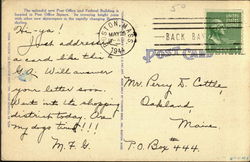 The splendid new Post Office and Federal Building is
located in Post Office Square. Its towering height joins
with other new skyscrapers in the rapidly changing
skyline.
Hi-ya!
Just addressed
a card like this to
G.A. Will answer
your letter soon.
Went into the shopping
district today. Are
my dogs tired!!!
M.F.G.
BOSTON, MASS.
MAY
194
BACK
POST CARD
Mr. Perry D. Cottle,
Oakland,
Maine
P.O. Box #444.
50